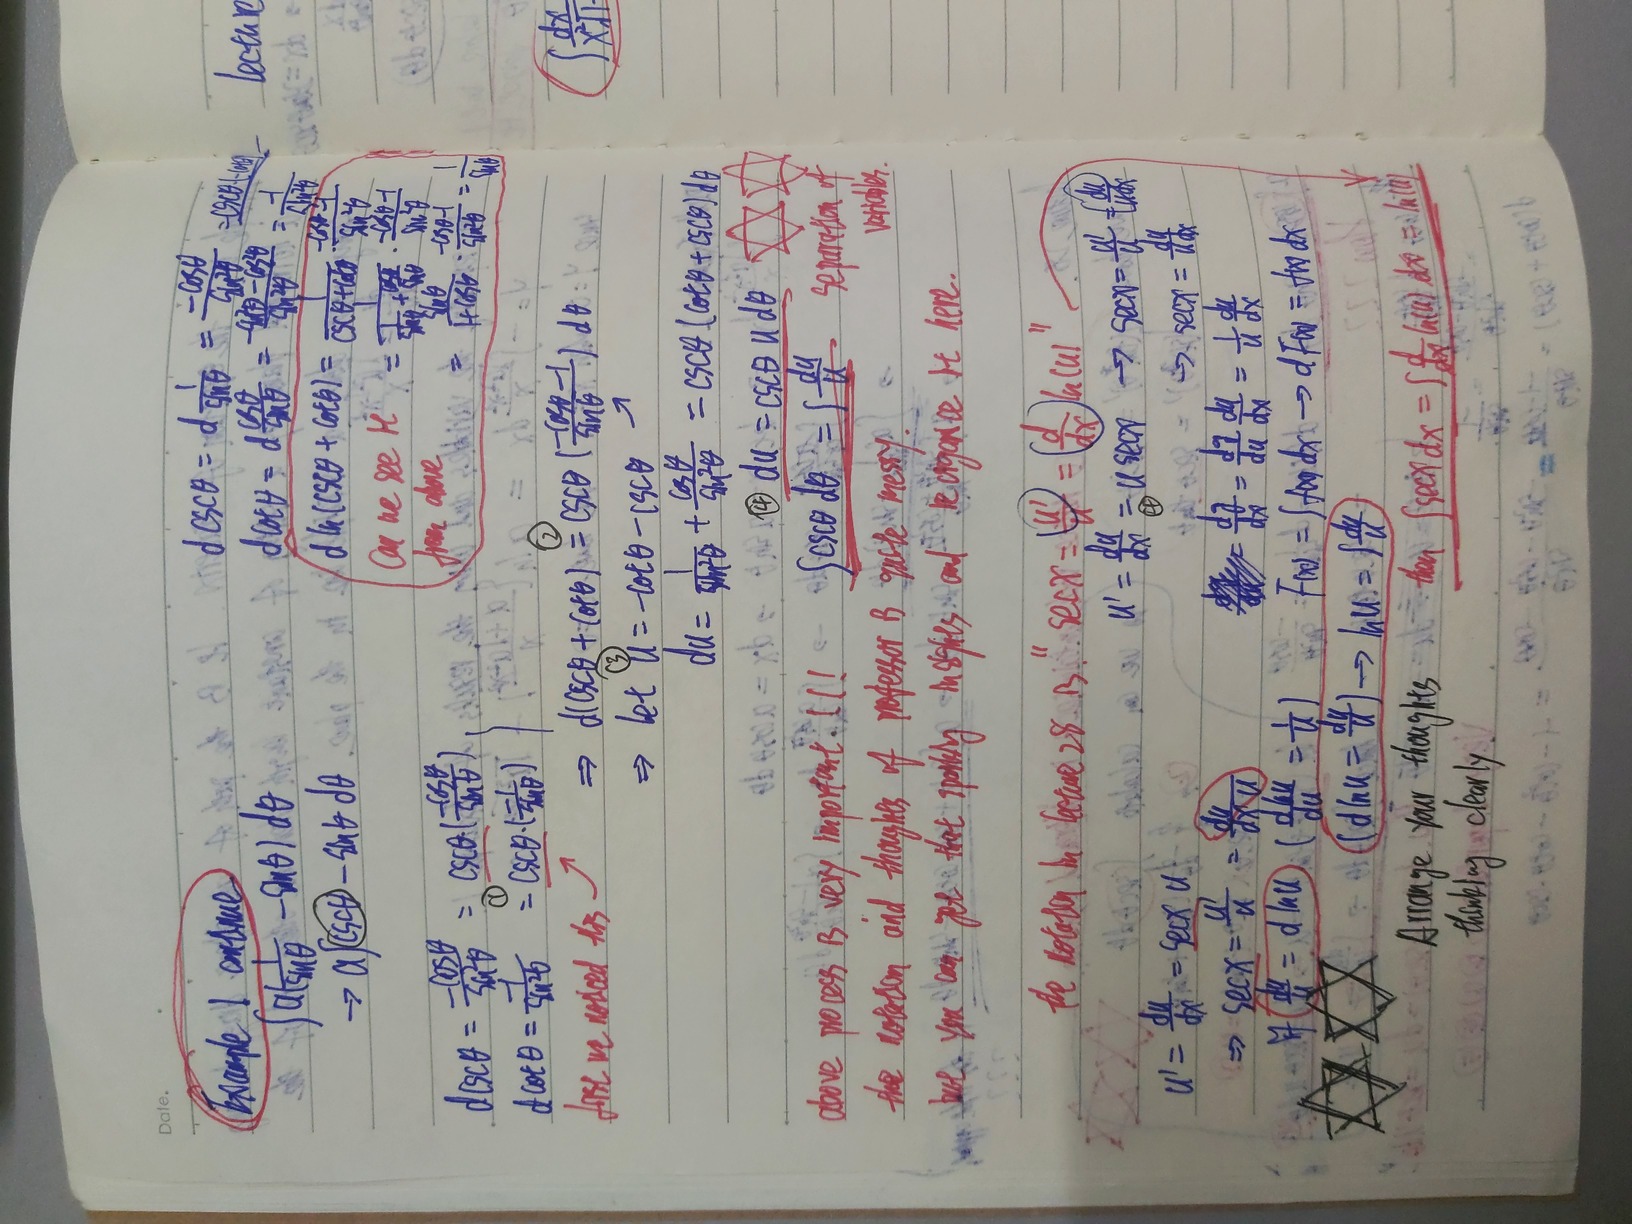 Date.
Example 1 continue
∫a(1/sinθ − sinθ) dθ
→ a∫cscθ − sinθ dθ
d cscθ = d 1/sinθ = −cosθ/sin²θ = cscθ(−cotθ)
d cotθ = d cosθ/sinθ = −sin²θ−cos²θ/sin²θ = −1/sin²θ
d ln(cscθ + cotθ) = 1/cscθ+cotθ · −cosθ−1/sin²θ
Can we see it = 1/(1/sinθ + cosθ/sinθ) · −cosθ−1/sin²θ
from above = sinθ/1+cosθ · −cosθ−1/sin²θ = 1/sinθ
d cscθ = −cosθ/sin²θ = cscθ·(−cosθ/sinθ)
① d cotθ = −1/sin²θ = cscθ·(−1/sinθ)
first we noticed this
⇒ d(cscθ + cotθ) ②= cscθ (−cosθ−1/sinθ) dθ
⇒ let ③ u = −cotθ − cscθ
du = 1/sin²θ + cosθ/sin²θ = cscθ (cotθ + cscθ) dθ
④ du = cscθ u dθ
∫cscθ dθ = ∫ du/u
separation of
variables.
above process is very important !!!
the notation and thoughts of professor is quite messy.
but you can get that sparking insights and reorganize it here.
the notation in lecture 28 is "secx = u'/u = d/dx ln(u)"
u' = du/dx ④= u secx → secx = u'/u = du/u dx
→ secx = du/u dx
u' = du/dx = secx u
⇒ secx = u'/u = du/dx u
= dy/dx = dy/du du/dx = 1/u du/dx
du/u = d lnu (dlnu/du = 1/u)
F(x) = ∫f(x) dx → dF(x) = f(x) dx
(dlnu = du/u) → lnu = ∫ du/u
Arrange your thoughts
thinking clearly.
then ∫secx dx = ∫ d/dx ln(u) dx = ln(u)
lecture
∫ dx